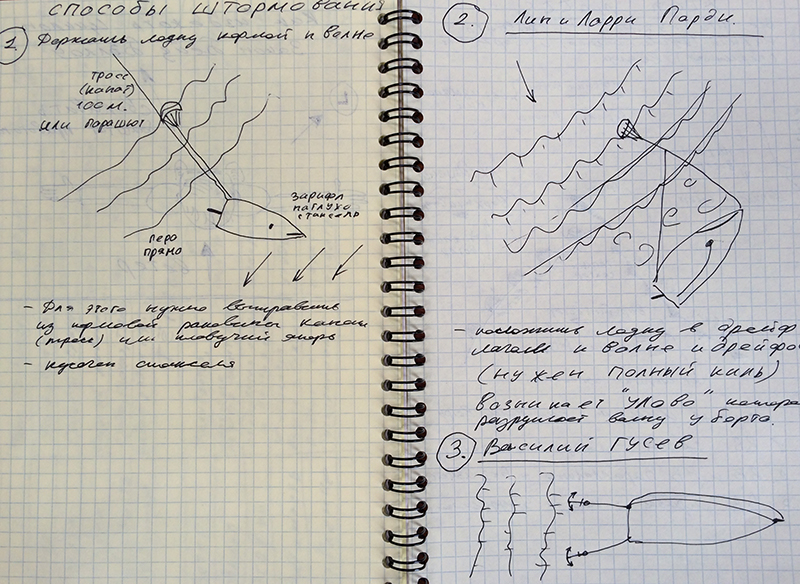 СПОСОБЫ ШТОРМОВАНИ
1. Держать лодку кормой к волне
ТРОСС
(КАНАТ)
100 М.
ИЛИ ПАРАШЮТ
ЗАРИФЛ
НАГЛУХО
СТАКСЕЛЬ
ПЕРО
ПРЯМО
- Для этого нужно вытравить
из кормовой раковины канат
(тросс) или плавучий якорь
- кусочек стакселя
2. Лин и Ларри Парди.
- положить лодку в дрейф
лагом к волне и дрейфо
(НУЖЕН ПОЛНЫЙ КИЛЬ)
Возникает "УЛОВО" котора
разрушает волну у борта.
3. Василий ГУСЕВ